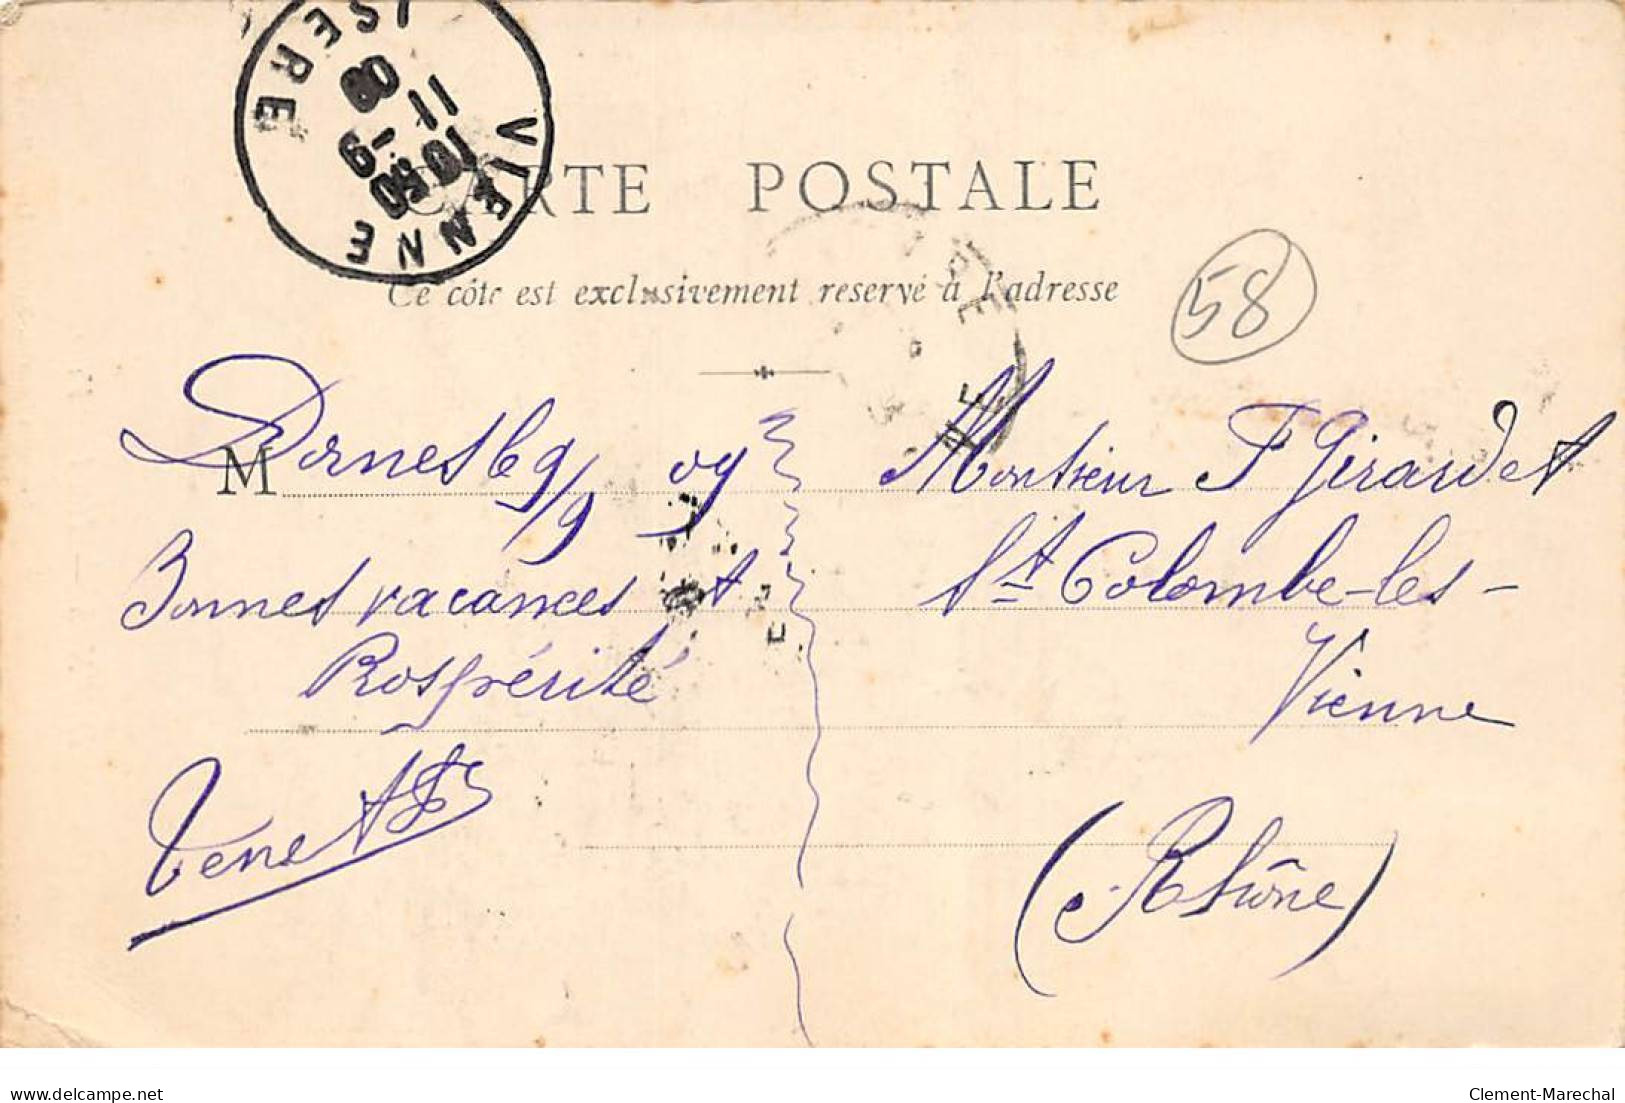 VIENNE
ISERE
10 50
11 -9
08
CARTE POSTALE
Ce côté est exclusivement reservé à l'adresse
58
M
Dornes le 9/9 09
Bonnes vacances et
Prospérité
Monsieur F Girardet
St Colombe-les-
Vienne
(Rhône)
delcampe.net
Clement-Marechal